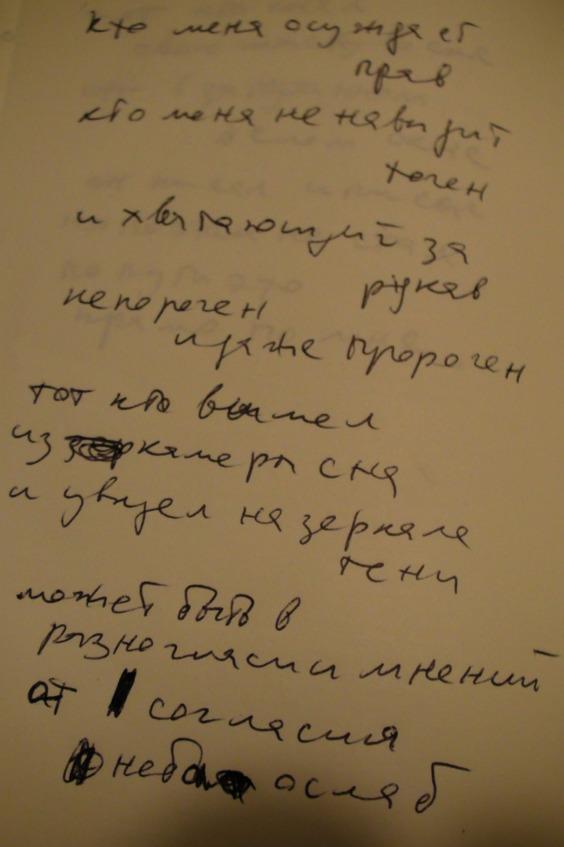 кто меня осуждает
прав
кто меня ненавидит
точен
и хватающий за
рукав
непорочен
и даже пророчен
тот кто вышел
из камеры сна
и увидел на зеркале
тени
может быть в
разногласии мнений
от согласия
небо ослаб